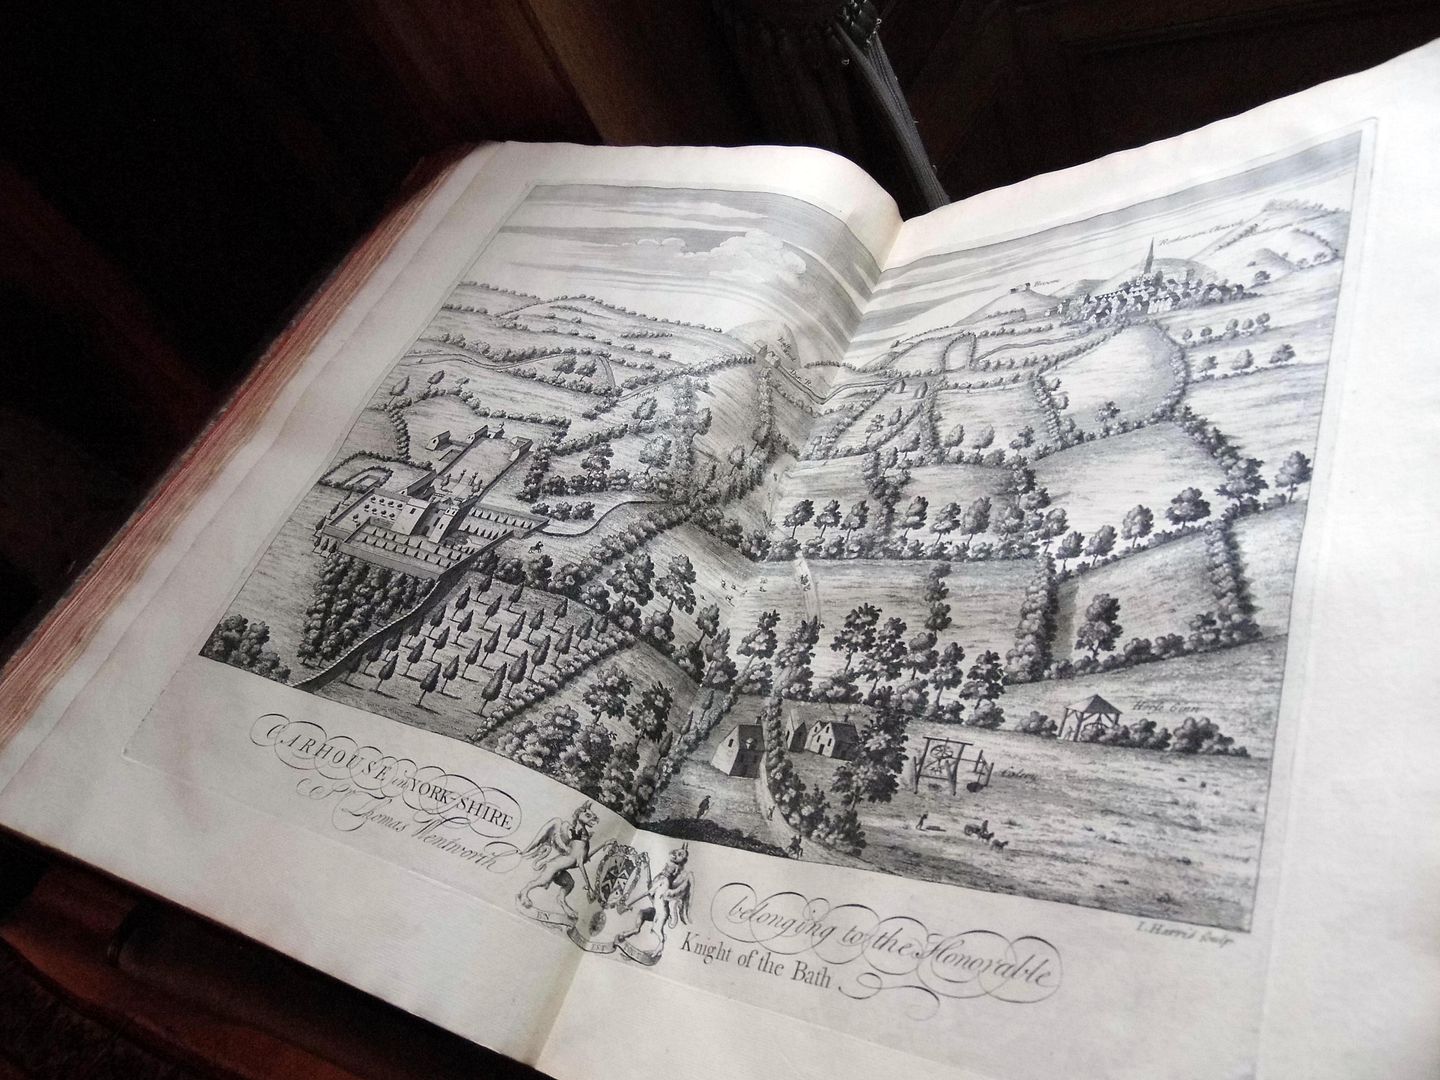 Rotheram Church
Broome
Horse Ginn
CARHOUSE in YORK-SHIRE belonging to the Honorable
Sr. Thomas Wentworth Knight of the Bath
EN EST
I. Harris sculp.